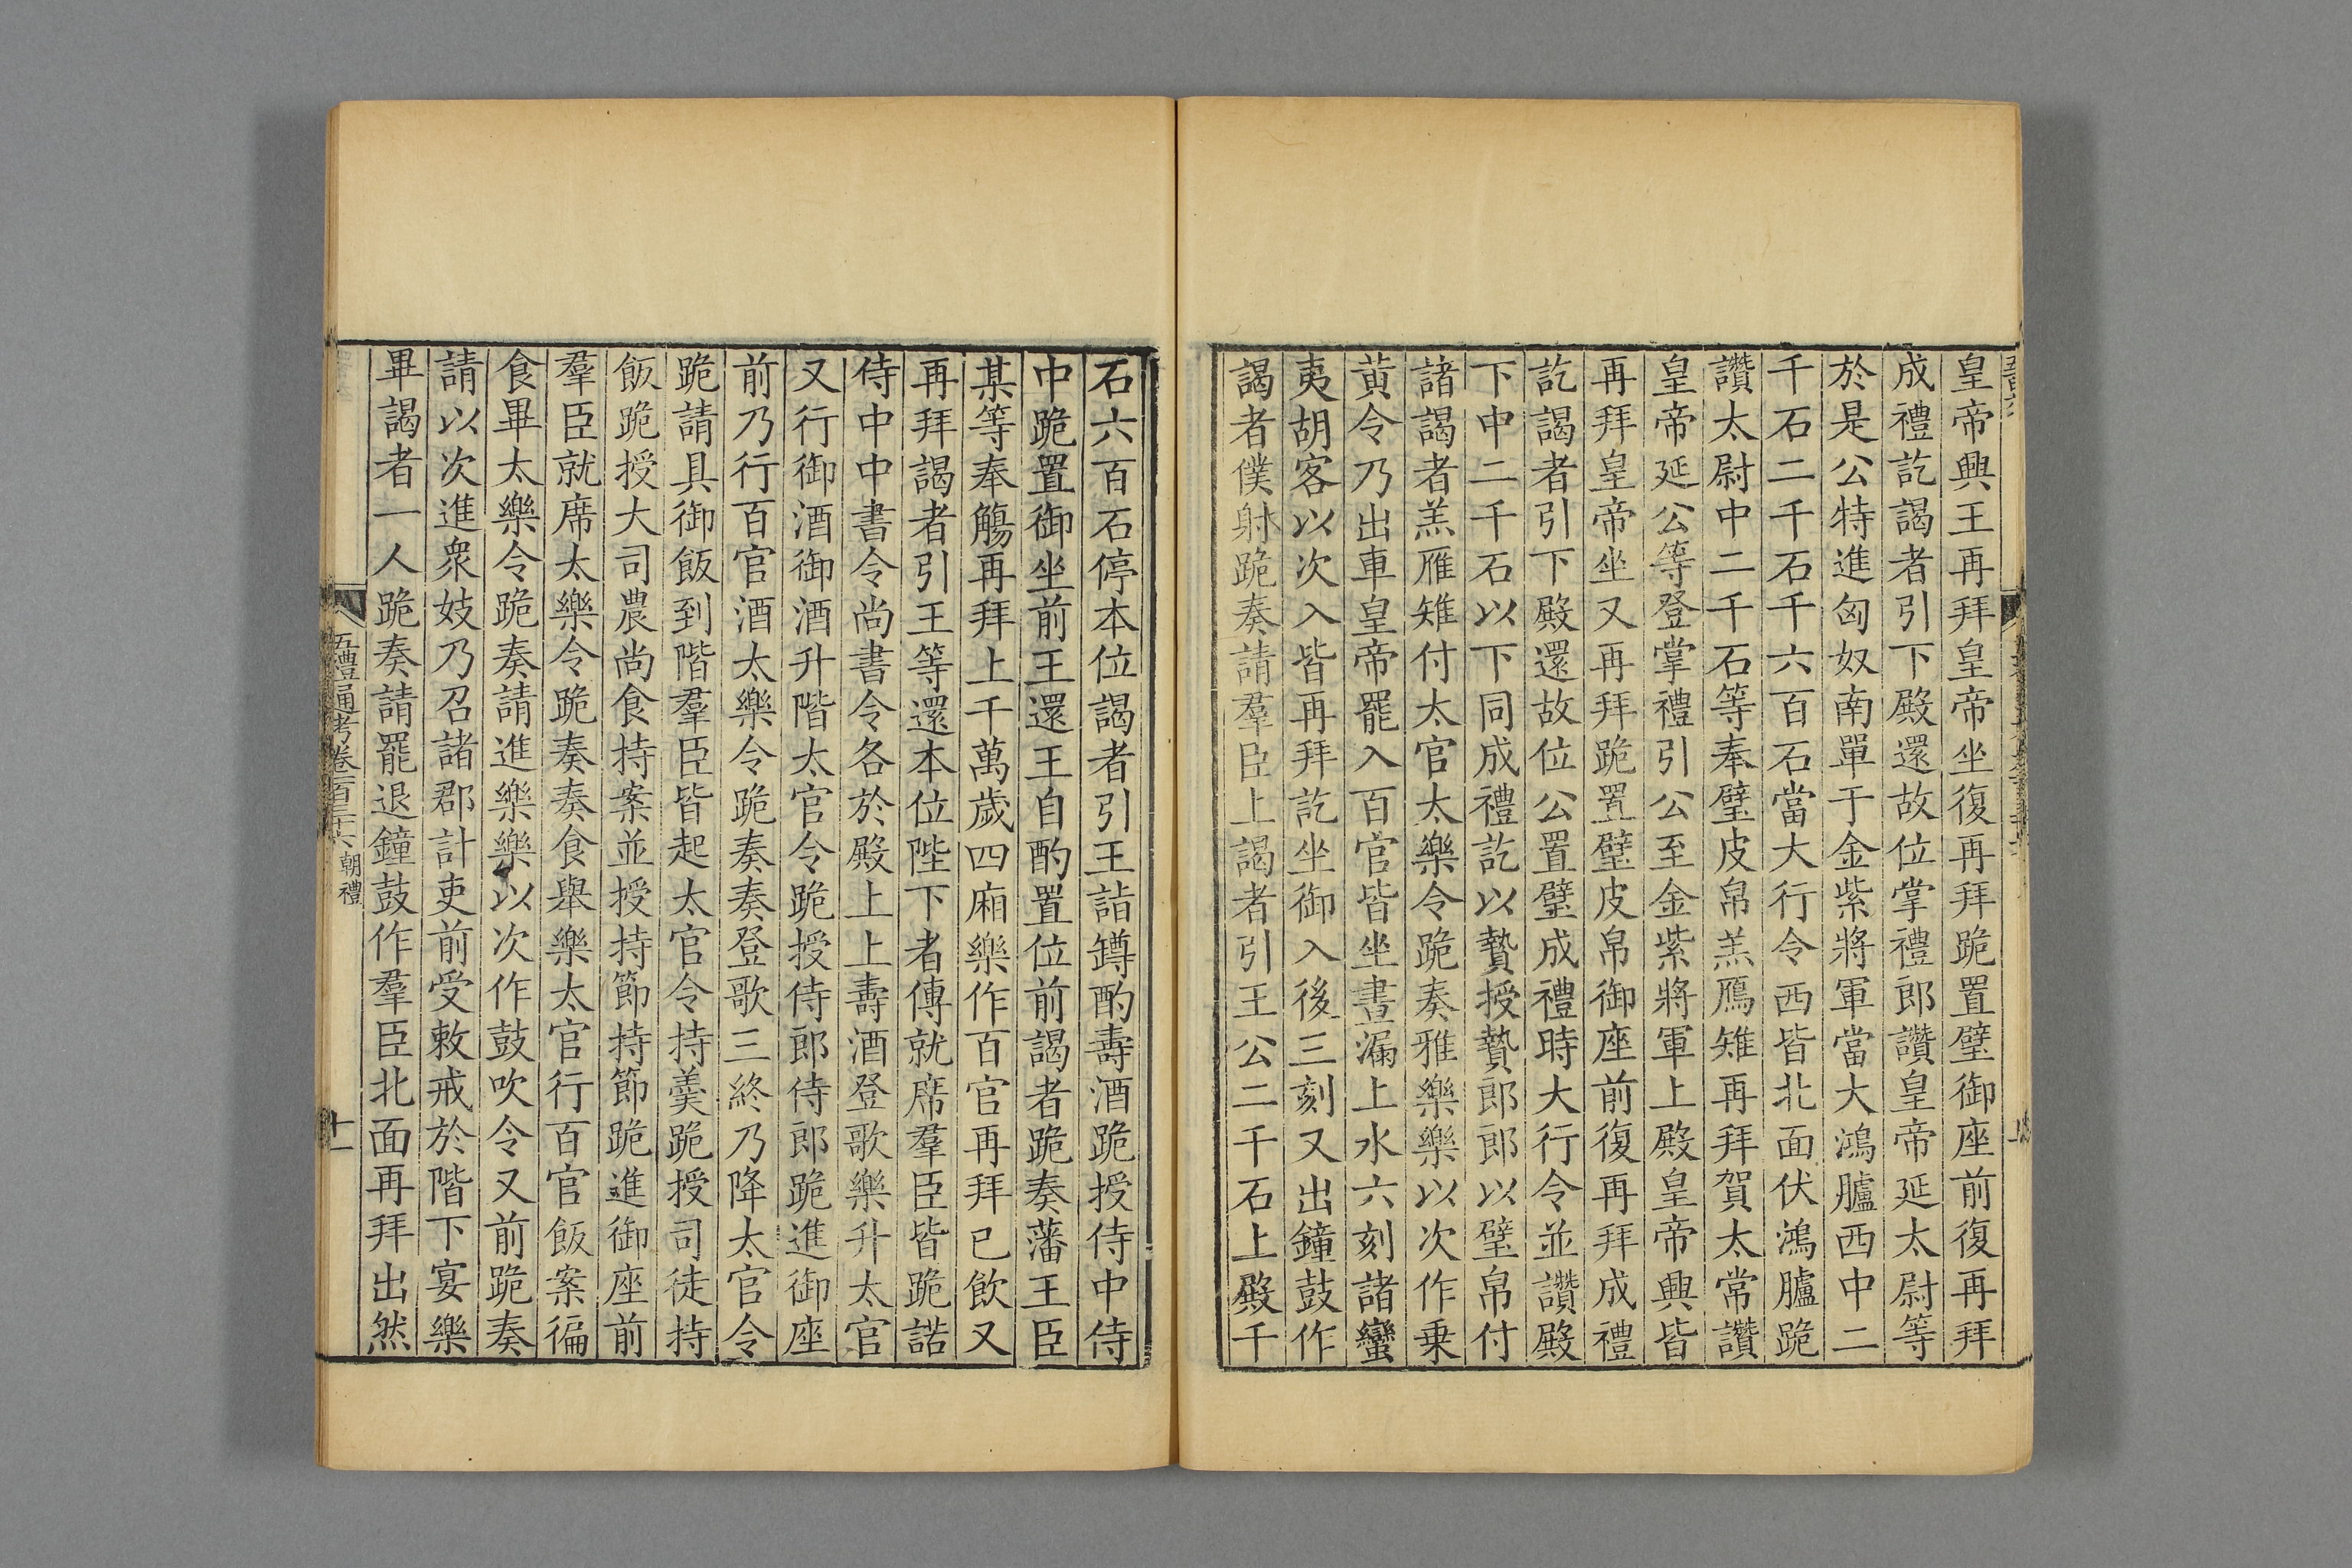 皇帝興王再拜皇帝坐復再拜跪置璧御座前復再拜
成禮訖謁者引下殿還故位掌禮郎讚皇帝延太尉等
於是公特進匈奴南單于金紫將軍當大鴻臚西中二
千石二千石千六百石當大行令西皆北面伏鴻臚跪
讚太尉中二千石等奉璧皮帛羔鴈雉再拜賀太常讚
皇帝延公等登掌禮引公至金紫將軍上殿皇帝興皆
再拜皇帝坐又再拜跪置璧皮帛御座前復再拜成禮
訖謁者引下殿還故位公置璧成禮時大行令並讚殿
下中二千石以下同成禮訖以贄授贄郎郎以璧帛付
諸謁者羔雁雉付太官太樂令跪奏雅樂樂以次作乗
黃令乃出車皇帝罷入百官皆坐晝漏上水六刻諸蠻
夷胡客以次入皆再拜訖坐御入後三刻又出鐘鼓作
謁者僕射跪奏請羣臣上謁者引王公二千石上殿千
石六百石停本位謁者引王詣罇酌壽酒跪授侍中侍
中跪置御坐前王還王自酌置位前謁者跪奏藩王臣
某等奉觴再拜上千萬歲四廂樂作百官再拜已飲又
再拜謁者引王等還本位陛下者傳就席羣臣皆跪諾
侍中中書令尚書令各於殿上上壽酒登歌樂升太官
又行御酒御酒升階太官令跪授侍郎侍郎跪進御座
前乃行百官酒太樂令跪奏奏登歌三終乃降太官令
跪請具御飯到階羣臣皆起太官令持羹跪授司徒持
飯跪授大司農尚食持案並授持節持節跪進御座前
羣臣就席太樂令跪奏奏食舉樂太官行百官飯案徧
食畢太樂令跪奏請進樂樂以次作鼓吹令又前跪奏
請以次進衆妓乃召諸郡計吏前受敕戒於階下宴樂
畢謁者一人跪奏請罷退鐘鼓作羣臣北面再拜出然
五禮通考卷一百三十六 朝禮
十一